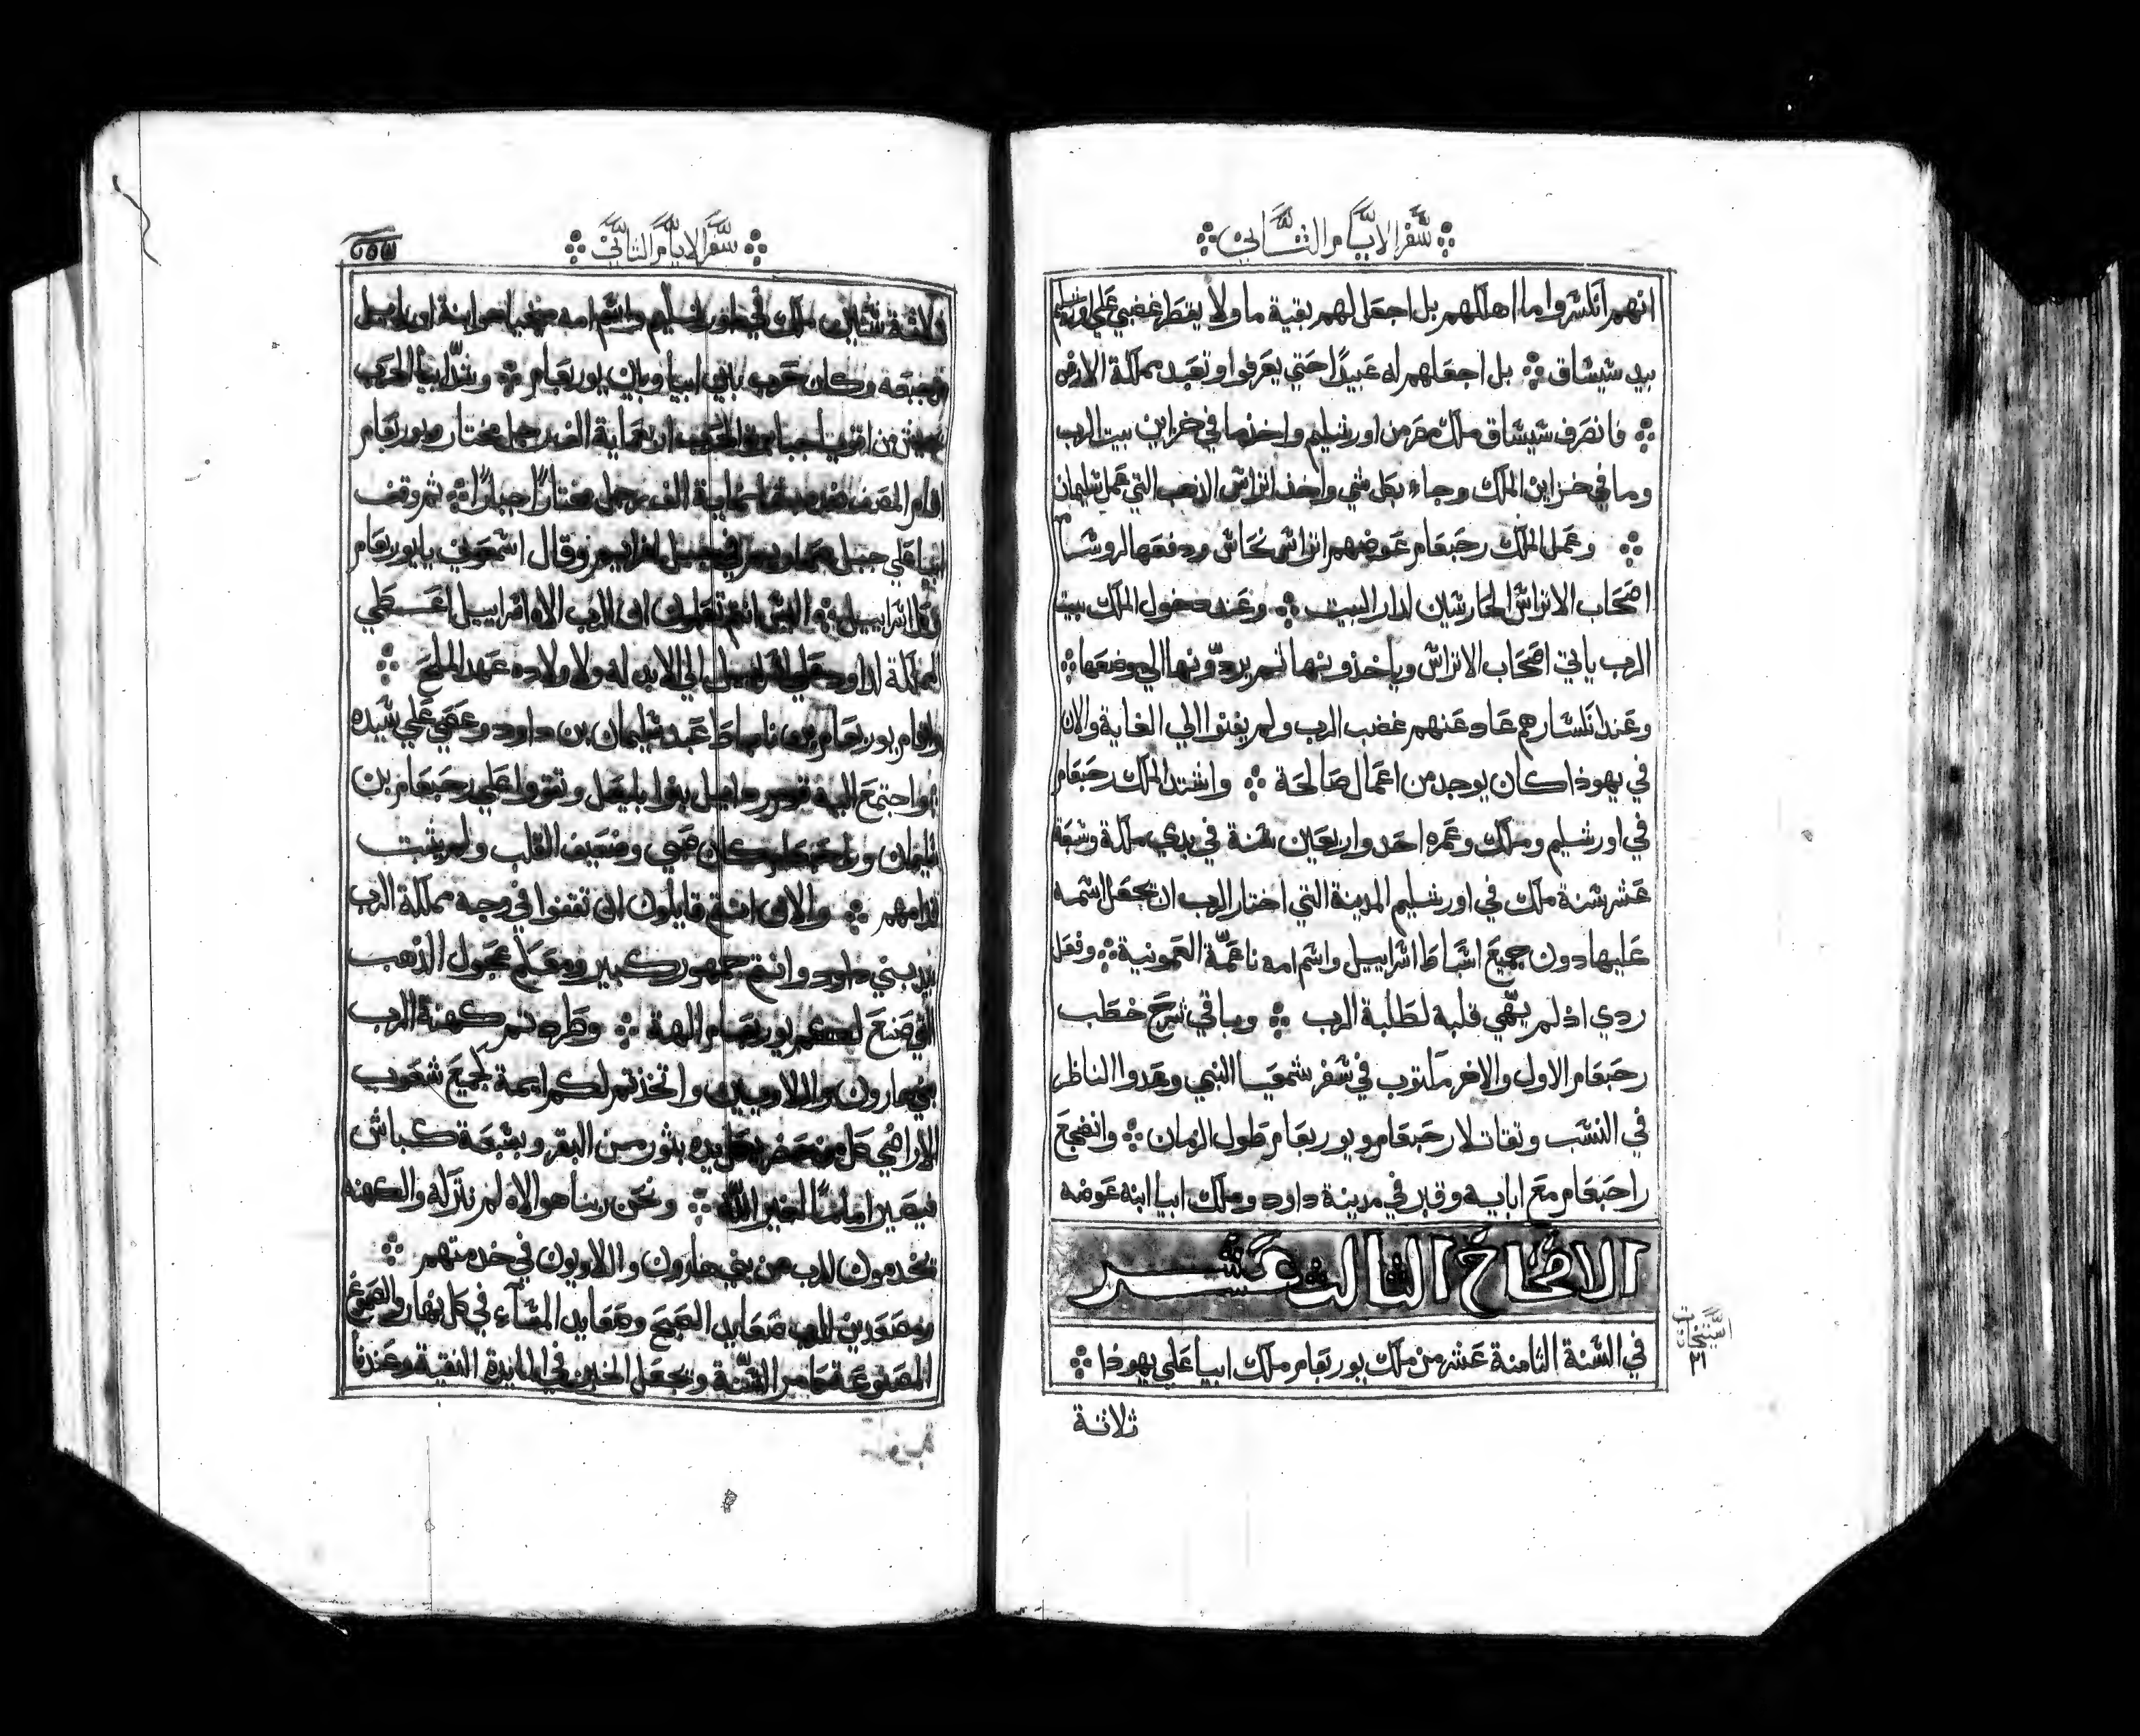 سفر الايام الثاني
انهم انكسروا ما اهلكهم بل اجعل لهم بقية ما ولا يقطر غضبي علي اورشليم
بيد شيشاق بل اجعلهم له عبيدًا حتي يعرفوا وتعبد مملكة الارض
فانصرف شيشاق ملك مصر من اورشليم واخذ ما في خزاين بيت الرب
وما في خزاين الملك وجاء بكل شي واخذ اتراس الذهب التي عمل سليمان
وعمل الملك رحبعام عوضهم اتراس نحاس ودفعها لروسا
اصحاب الاتراس الحارسين لدار البيت وعند دخول الملك بيت
الرب ياتي اصحاب الاتراس وياخذونها ثم يردّونها الي موضعها
وعند انكسارهم عاد عنهم غضب الرب ولم يفنوا الي الغاية والان
في يهوذا كان يوجد من اعمال صالحة واشتد الملك رحبعام
في اورشليم وملك وعمره احد واربعين سنة في بدي ملكه وسبعة
عشر سنة ملك في اورشليم المدينة التي اختار الرب ان تجعل اسمه
عليها دون جميع اسباط اسراييل واسم امه ناعمّة العمونية وفعل
ردي اذ لم يهّي قلبه لطلبة الرب وباقي شرح خطب
رحبعام الاول والاخر مكتوب في سفر شمعيا النبي وعدوا الناظر
في النسب وتقاتلا رحبعام ويوربعام طول الزمان وانضجع
راحبعام مع ابايه وقبر في مدينة داود وملك ابيا ابنه عوضه
الاصحاح الثالث عشر
في السنة الثامنة عشر من ملك يوربعام ملك ابيا علي يهوذا
ثلاثة
سفر الايام الثاني
ثلاثة سنين ملك في اورشليم واسم امه ابنة اوراييل
من جبعه وكان حرب بين ابيا وبين يوربعام وشدّ ابيا الحرب
اربعماية الف رجل مختار ويوربعام
اقام المصف ثمانماية الف رجل مختارًا جبارًا ثم وقف
ابيا علي جبل في جبل افراييم وقال اسمعوني يا يوربعام
وكل اسراييل اليس انتم تعلمون ان الرب الاه اسراييل اعطي
المملكة لداود علي اسراييل الي الابد له ولاولاده عهد الملح
وقام يوربعام بن ناباط عبد سليمان بن داود وعصي علي سيده
واجتمع اليه قوم بنوا بليعل وتقووا علي رحبعام بن
سليمان ورحبعام كان صبي وضعيف القلب ولم يثبت
قدامهم والان انتم قايلون ان تقفوا في وجه مملكة الرب
بيد بني داود وانتم جمهور كبير ومعكم عجول الذهب
التي صنع لكم يوربعام الهة وطردتم كهنة الرب
بني هارون واللاويين واتخذتم لكم ايمة لجميع شعوب
الاراضي كل من يده بثور من البقر وبسبعة كباش
فيصير امامًا لغير الله ونحن ربنا هو الاه لم نتركه والكهنه
يخدمون للرب من بني هارون واللاويون في خدمتهم
ومصعدين للرب صعايد الصبح وصعايد المساء في كل نهار والصموغ
المصنوعة وتجعل الخبز في المايدة النقية وعندنا